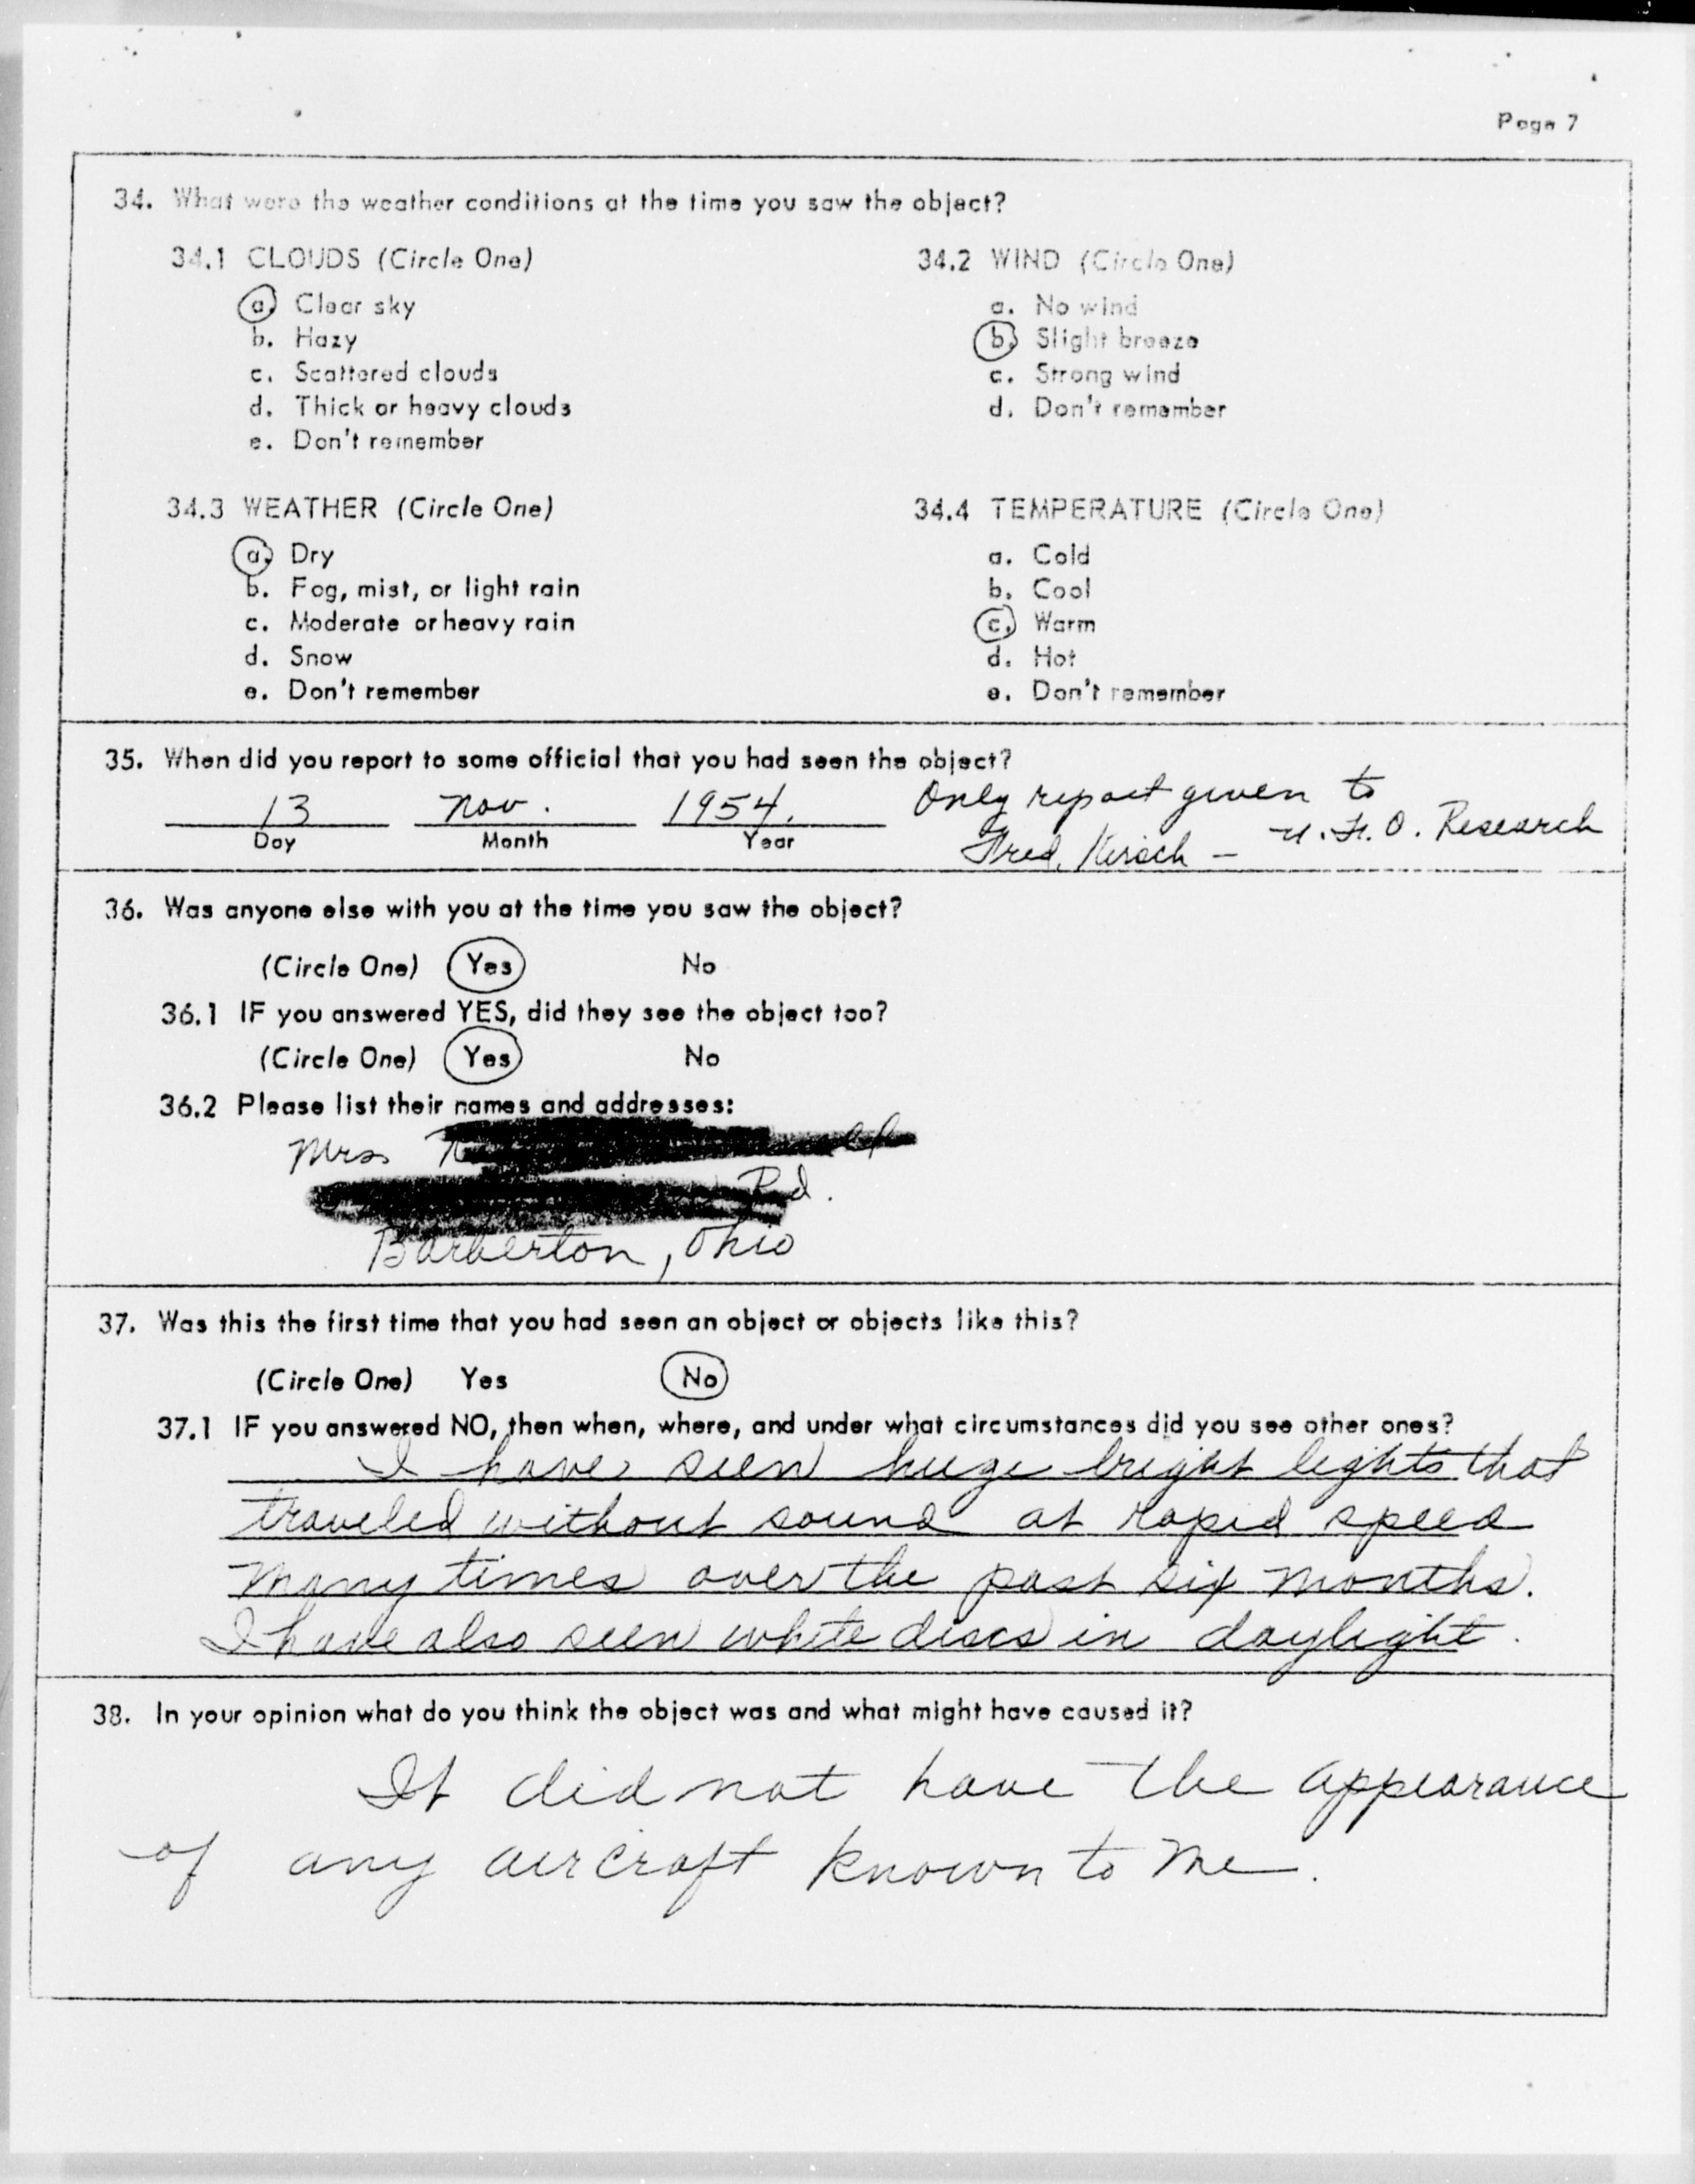 Page 7
34. What were the weather conditions at the time you saw the object?
34.1 CLOUDS (Circle One)
a. Clear sky
b. Hazy
c. Scattered clouds
d. Thick or heavy clouds
e. Don't remember
34.2 WIND (Circle One)
a. No wind
b. Slight breeze
c. Strong wind
d. Don't remember
34.3 WEATHER (Circle One)
a. Dry
b. Fog, mist, or light rain
c. Moderate or heavy rain
d. Snow
e. Don't remember
34.4 TEMPERATURE (Circle One)
a. Cold
b. Cool
c. Warm
d. Hot
e. Don't remember
35. When did you report to some official that you had seen the object?
13 Nov. 1954.
Day Month Year
Only report given to
Fred, Kirsch - U.F.O. Research
36. Was anyone else with you at the time you saw the object?
(Circle One) Yes No
36.1 IF you answered YES, did they see the object too?
(Circle One) Yes No
36.2 Please list their names and addresses:
Mrs
Rd.
Barberton, Ohio
37. Was this the first time that you had seen an object or objects like this?
(Circle One) Yes No
37.1 IF you answered NO, then when, where, and under what circumstances did you see other ones?
I have seen huge bright lights that
traveled without sound at rapid speed
many times over the past six months.
I have also seen white discs in daylight.
38. In your opinion what do you think the object was and what might have caused it?
It did not have the appearance
of any aircraft known to me.